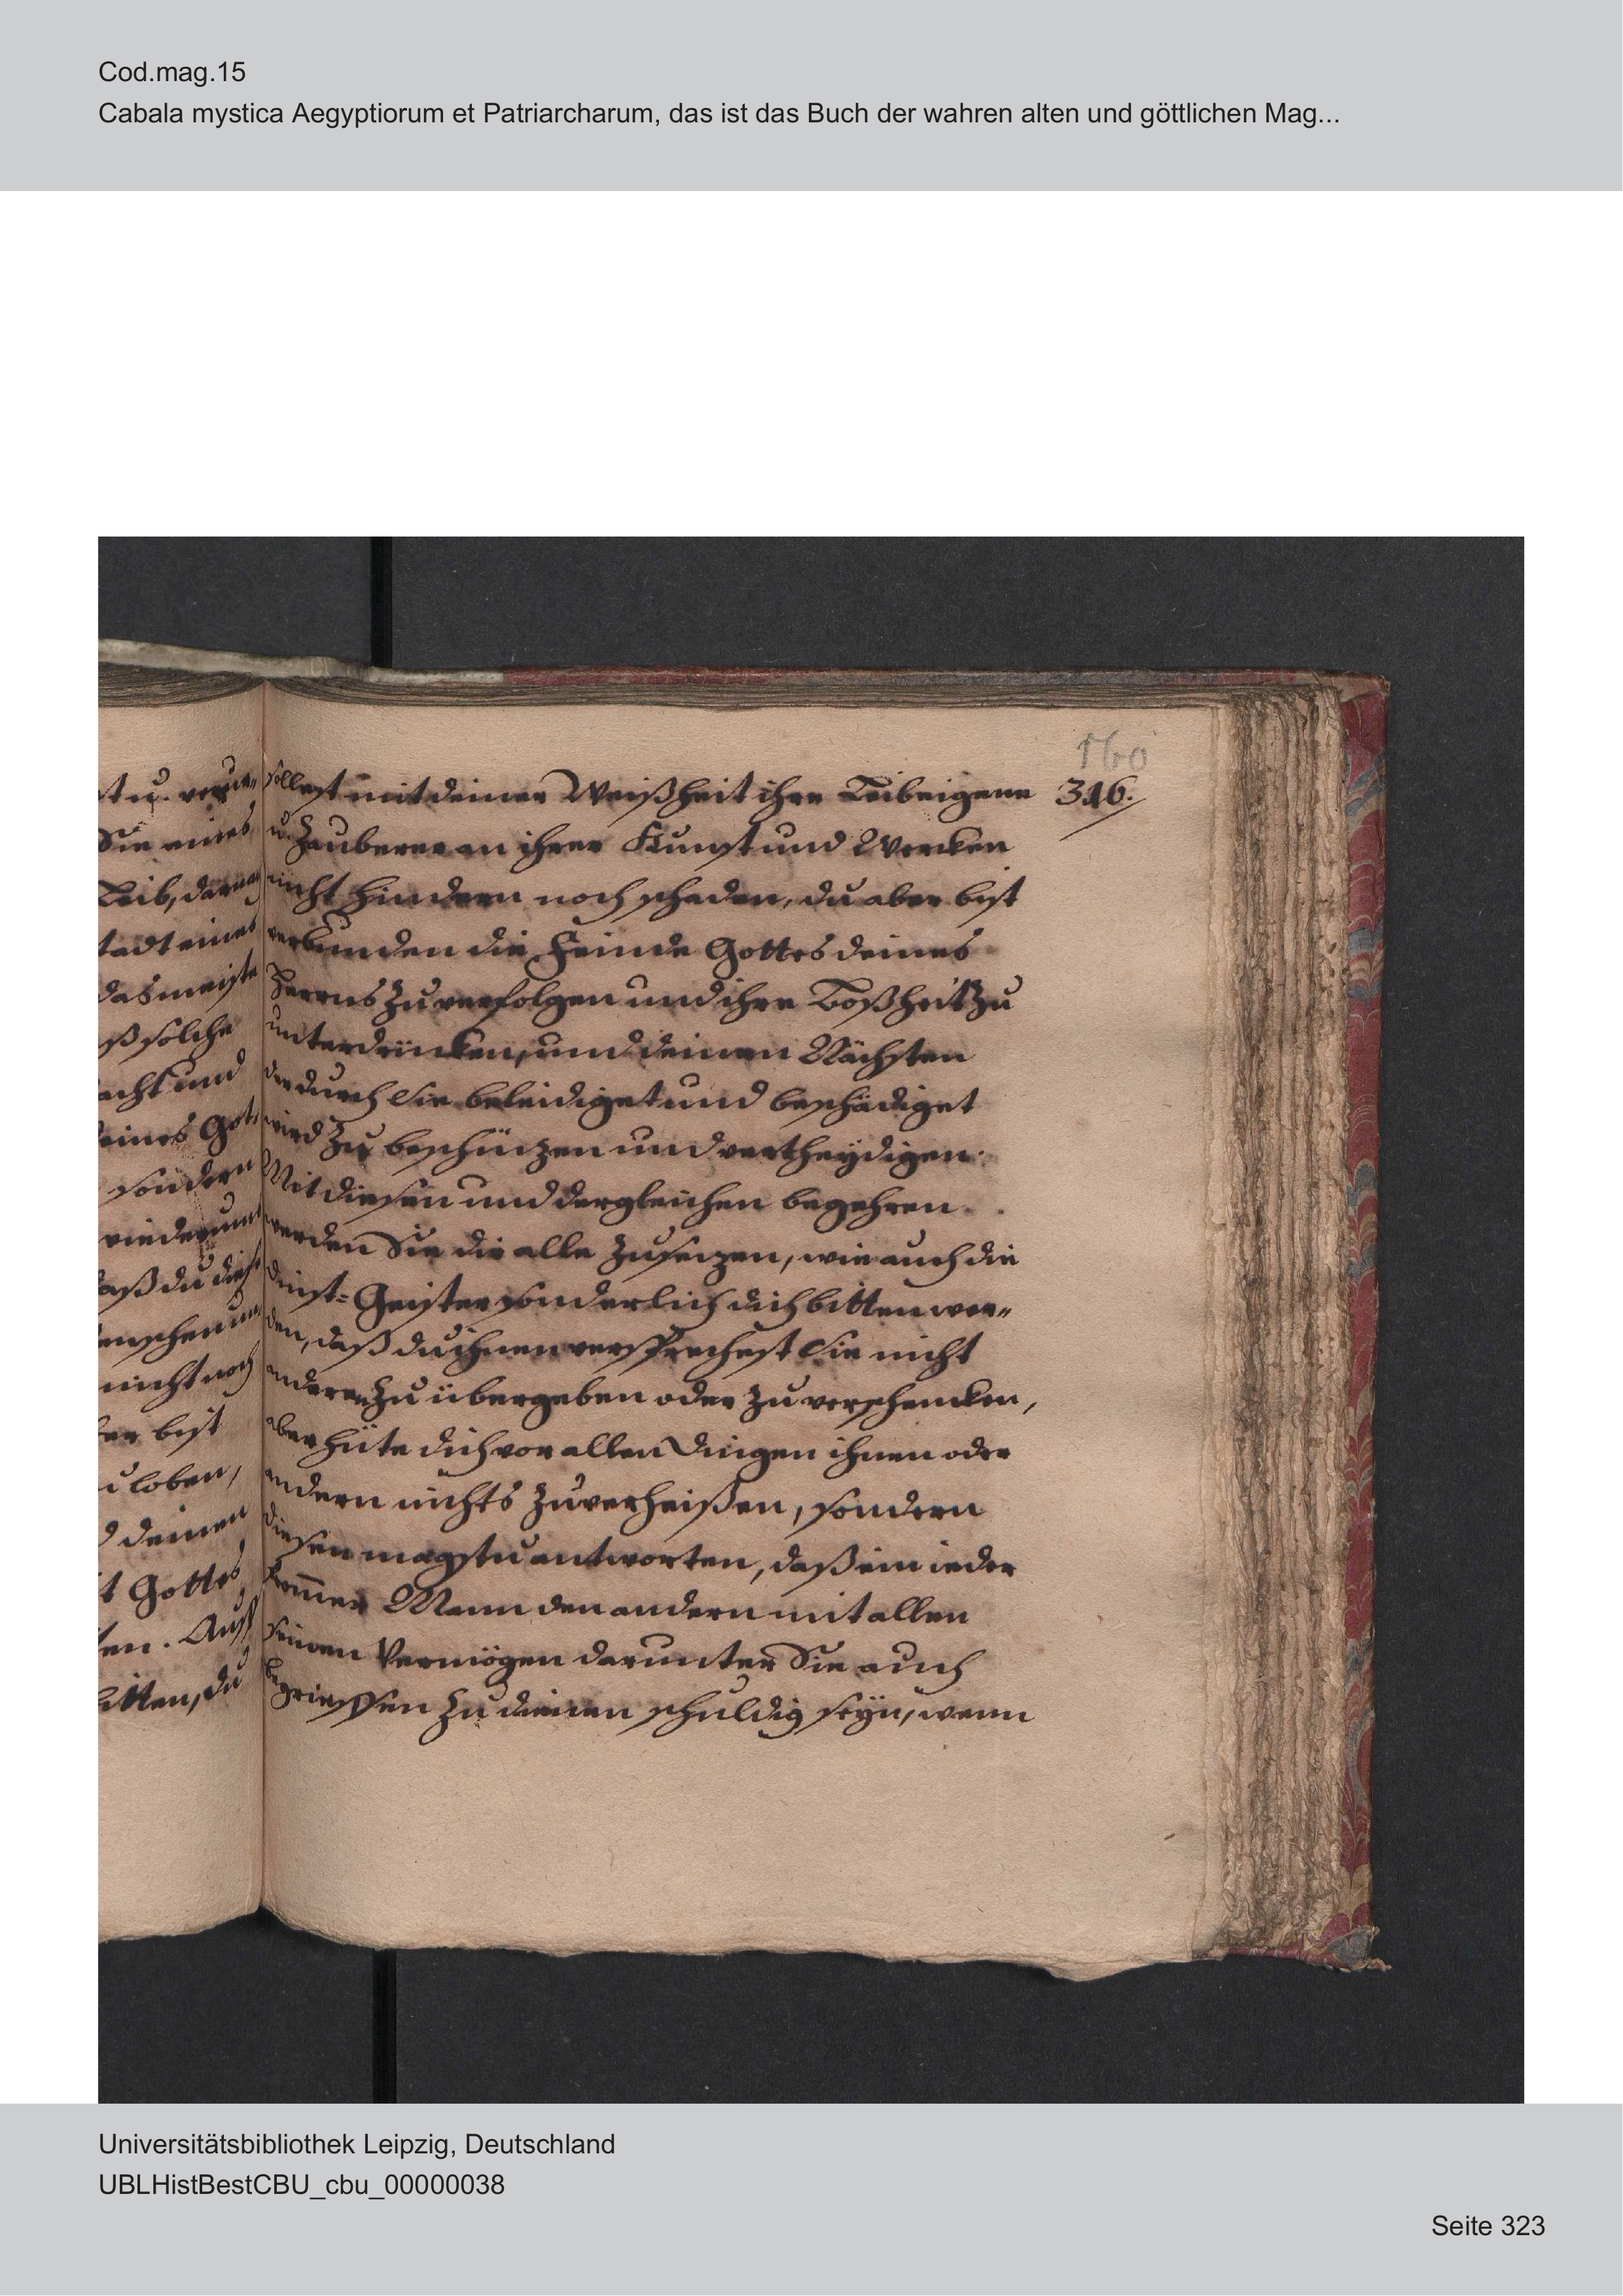 Cod.mag.15
Cabala mystica Aegyptiorum et Patriarcharum, das ist das Buch der wahren alten und göttlichen Mag...
160
316.
t u.
Sie eines
Leib, darnach
tadt eines
das meiste
ß solche
acht und
eines Got,
sondern
wiederumb
aß du dich
enschen und
nicht noch
er bist
u loben,
d deinen
t Gottes
en. Auff
bitten, du
sollest mit deiner Weißheit ihre Leibeigene
u. Zauberer an ihrer Kunst und Wercken
nicht hindern noch schaden, du aber bist
verbunden die Feinde Gottes deines
Herrns zu verfolgen und ihre Boßheit zu
unterdrücken, und deinen Nächsten
der durch Sie beleidiget und beschädiget
wird zu beschützen und vertheydigen.
Mit diesen und dergleichen begehren
werden Sie dir alle zusezen, wie auch die
dinst=Geister sonderlich dich bitten wer„
den, daß du ihnen versprechest Sie nicht
anderen zu übergeben oder zu verschencken,
aber hüte dich vor allen Dingen ihnen oder
andern nichts zu verheißen, sondern
diesen magstu antworten, daß ein ieder
from̄er Mann den andern mit allen
seinen Vermögen darunter Sie auch
begrieffen zu dienen schuldig seyn, wenn
Universitätsbibliothek Leipzig, Deutschland
UBLHistBestCBU_cbu_00000038
Seite 323